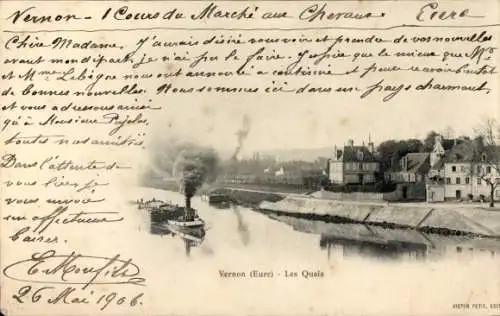 Vernon - 1 Cours du Marché aux Chevaux - Eure -
Chère Madame, J'aurais désiré vous voir et prendre de vos nouvelles
avant mon départ, je n'ai pas pu le faire. J'espère que le mieux que Mr
et Mme nous ont annoncé a continué et pour recevoir
de bonnes nouvelles. Nous sommes ici dans un pays charmant,
et vous adressons ainsi
qu'à Monsieur
toutes nos amitiés.
Dans l'attente de
vous
vous envoie
en
baiser
26 Mai 1906
Vernon (Eure) - Les Quais
VICTOR PETIT, EDIT